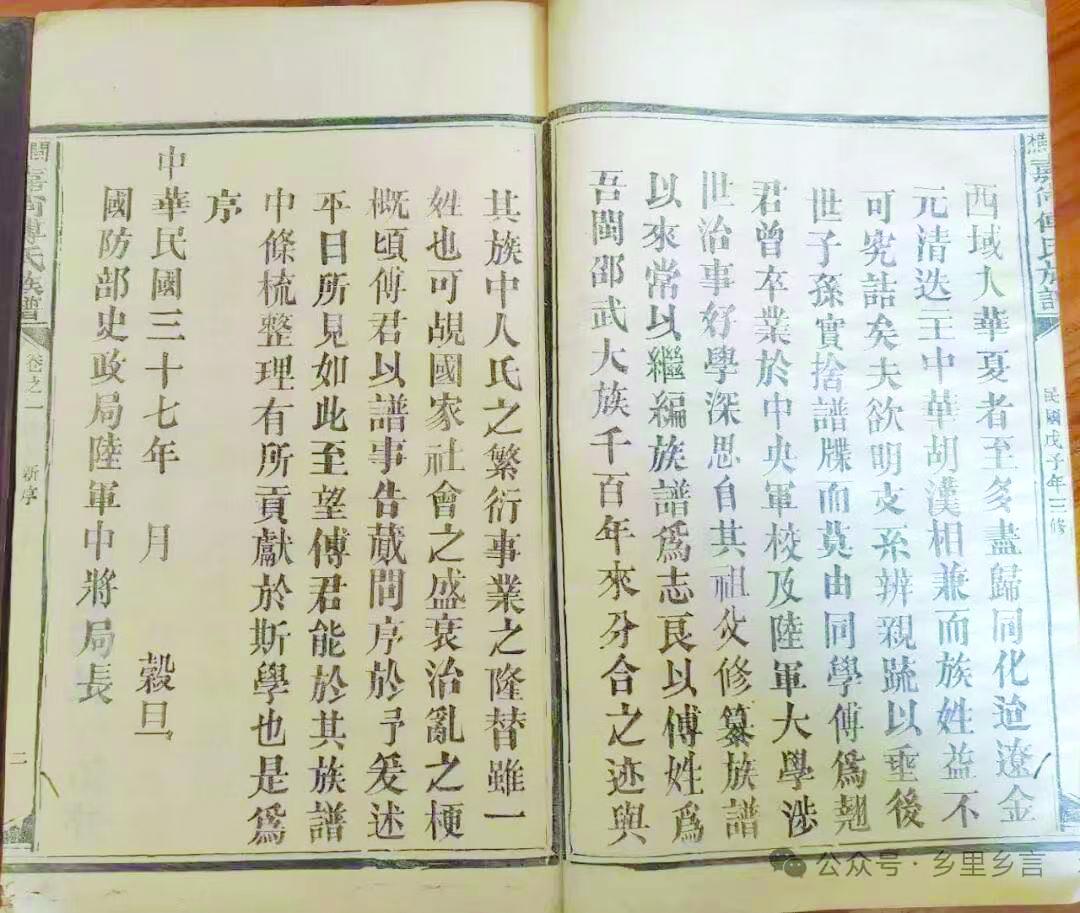 西域人華夏者至多盡歸同化迨遼金
元清迭主中華胡漢相兼而族姓益不
可究詰矣夫欲明支系辨親疏以垂後
世子孫實捨譜牒而莫由同學傅爲翹
君曾卒業於中央軍校及陸軍大學涉
世治事好學深思自其祖父修纂族譜
以來常以繼編族譜爲志良以傅姓爲
吾閩邵武大族千百年來分合之迹與
民國戊子年三修
其族中人氏之繁衍事業之隆替雖一
姓也可覘國家社會之盛衰治亂之梗
概頃傅君以譜事告蕆問序於予爰述
平日所見如此至望傅君能於其族譜
中條梳整理有所貢獻於斯學也是爲
序
中華民國三十七年 月 穀旦
國防部史政局陸軍中將局長
卷之一
新序
二
公众号·乡里乡言